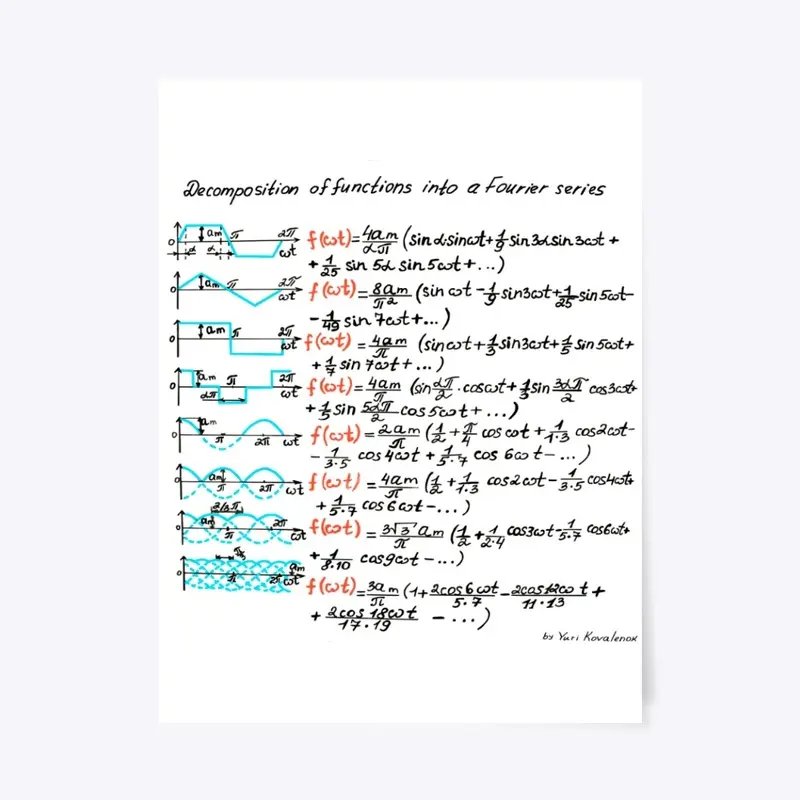 Decomposition of functions into a Fourier series
am π 2π
0 α α ωt
f(ωt)=4am/απ (sinα·sinωt+1/9 sin3αsin3ωt+
+1/25 sin 5α sin 5ωt+...)
am π 2π
0 ωt
f(ωt)=8am/π² (sin ωt-1/9 sin3ωt+1/25 sin5ωt-
-1/49 sin 7ωt+...)
am π 2π
0 ωt
f(ωt)=4am/π (sinωt+1/3 sin3ωt+1/5 sin 5ωt+
+1/7 sin 7ωt+...)
am π 2π
0 απ ωt
f(ωt)=4am/π (sin απ/2·cosωt+1/3 sin 3απ/2 cos3ωt+
+1/5 sin 5απ/2 cos5ωt+...)
am
0 π 2π ωt
f(ωt)=2am/π (1/2+π/4 cosωt+1/1·3 cos2ωt-
-1/3·5 cos4ωt+1/5·7 cos 6ωt-...)
am
0 π 2π ωt
f(ωt)=4am/π (1/2+1/1·3 cos2ωt-1/3·5 cos4ωt+
+1/5·7 cos6ωt-...)
2/3π
am
0 π 2π ωt
f(ωt)=3√3 am/π (1/2+1/2·4 cos3ωt-1/5·7 cos6ωt+
+1/8·10 cos9ωt-...)
π/3
am
0 π 2π ωt
f(ωt)=3am/π (1+2cos6ωt/5·7-2cos12ωt/11·13+
+2cos18ωt/17·19 -...)
by Yuri Kovalenok